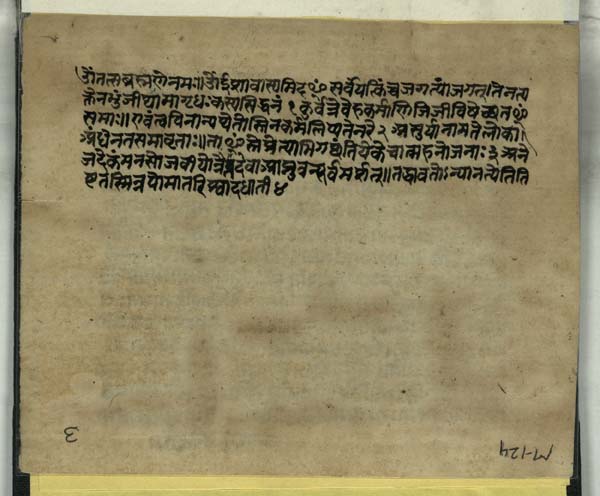 ॐतत्सब्रह्मणेनमः॥ॐईशावास्यमिदꣳसर्वंयत्किंचजगत्यांजगत्।तेनत्य
क्तेनभुंजीथामागृधःकस्यस्विद्धनं१कुर्वन्नेवेहकर्माणिजिजीविषेच्छतꣳ
समाः॥एवंत्वयिनान्यथेतोस्तिनकर्मलिप्यतेनरे२असुर्यानामतेलोका
अंधेनतमसावृताः॥ताꣳस्तेप्रेत्याभिगछंतियेकेचात्महनोजनाः३अने
जदेकंमनसोजवीयोनैनद्देवाआप्नुवन्पूर्वमर्शत्॥तद्धावतोऽन्यानत्येतिति
ष्टतस्मिन्नपोमातरिश्वादधाती४
३
M-124